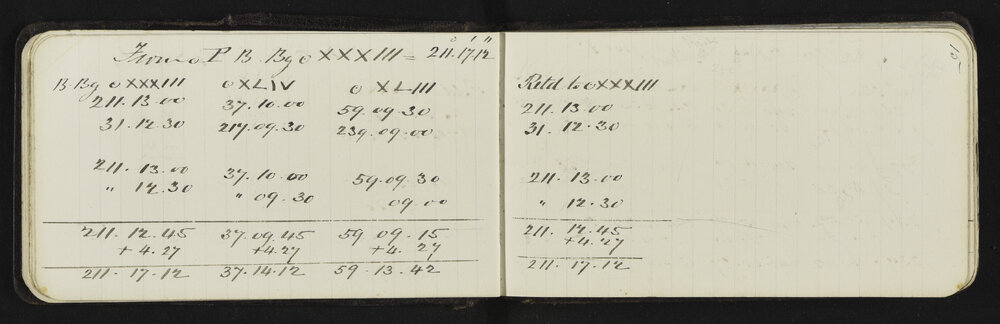 From o P B. Bg o XXXIII = 211.17.12
B. Bg o XXXIII o XLIV o XLIII
211.13.00 37.10.00 59.09.30
31.12.30 217.09.30 239.09.00
211.13.00 37.10.00 59.09.30
" 12.30 " 09.30 09.00
211.12.45 37.09.45 59 09.15
+4.27 +4.27 +4.27
211.17.12 37.14.12 59.13.42
15
Retd to o XXXIII
211.13.00
31.12.30
211.13.00
" 12.30
211.12.45
+4.27
211.17.12